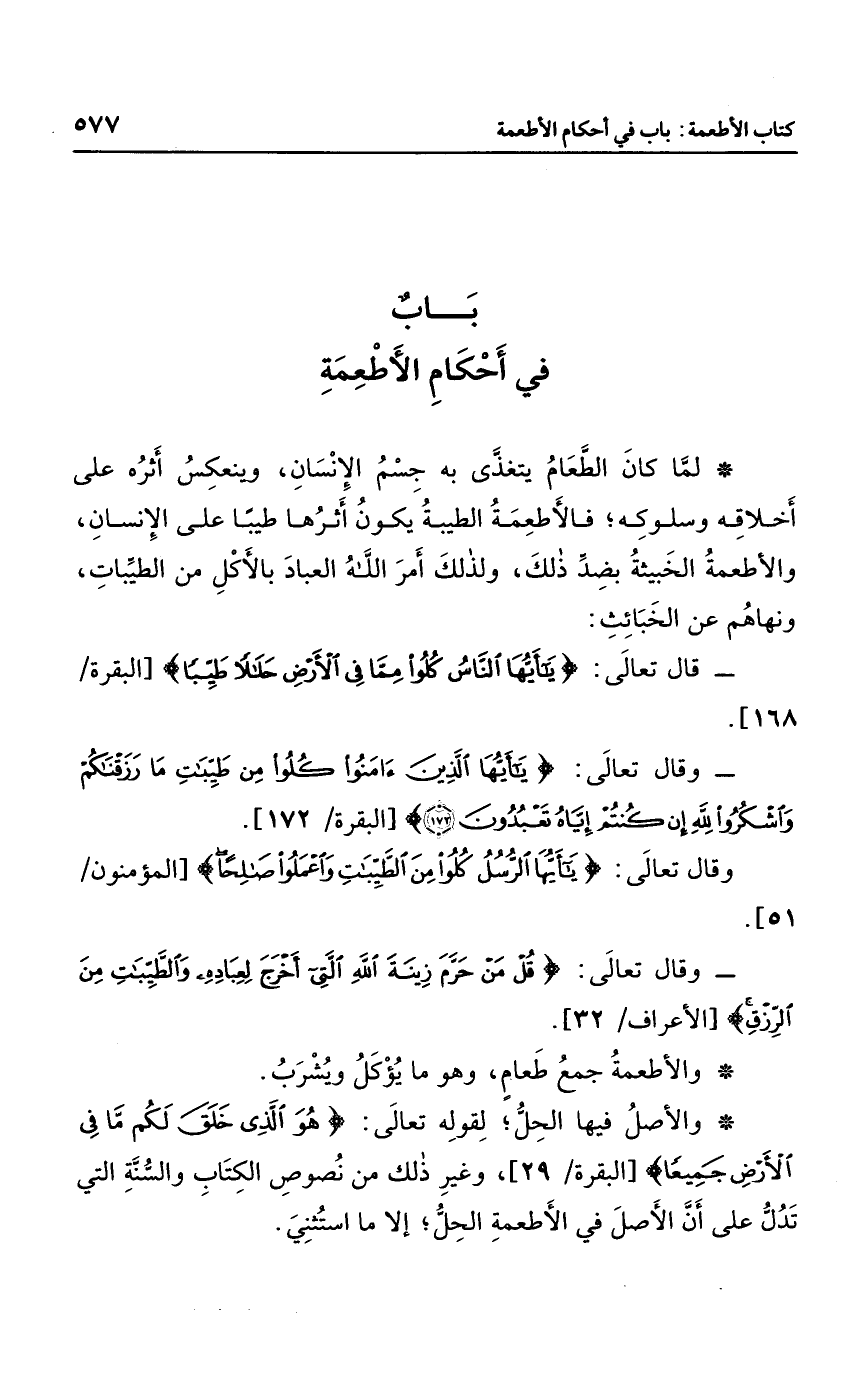 كتاب الأطعمة: باب في أحكام الأطعمة ٥٧٧
بَـــابٌ
في أَحْكَامِ الأَطْعِمَةِ
* لمَّا كانَ الطَّعَامُ يتغذَّى به جِسْمُ الإنْسَانِ، وينعكِسُ أَثرُه على
أخلاقِه وسلوكِه؛ فالأطعِمَةُ الطيبةُ يكونُ أثرُها طيبًا على الإنسانِ،
والأطعمةُ الخَبيثةُ بضِدِّ ذٰلكَ، ولذٰلكَ أمرَ اللَّـهُ العبادَ بالأَكْلِ من الطيِّباتِ،
ونهاهُم عن الخَبَائِثِ:
ــ قال تعالَى: ﴿يَٰٓأَيُّهَا ٱلنَّاسُ كُلُواْ مِمَّا فِى ٱلْأَرْضِ حَلَٰلًا طَيِّبًا﴾ [البقرة/
١٦٨].
ــ وقال تعالَى: ﴿يَٰٓأَيُّهَا ٱلَّذِينَ ءَامَنُواْ كُلُواْ مِن طَيِّبَٰتِ مَا رَزَقْنَٰكُمْ
وَٱشْكُرُواْ لِلَّهِ إِن كُنتُمْ إِيَّاهُ تَعْبُدُونَ ١٧٢﴾ [البقرة/ ١٧٢].
وقال تعالَى: ﴿يَٰٓأَيُّهَا ٱلرُّسُلُ كُلُواْ مِنَ ٱلطَّيِّبَٰتِ وَٱعْمَلُواْ صَٰلِحًاۖ﴾ [المؤمنون/
٥١].
ــ وقال تعالَى: ﴿قُلْ مَنْ حَرَّمَ زِينَةَ ٱللَّهِ ٱلَّتِىٓ أَخْرَجَ لِعِبَادِهِۦ وَٱلطَّيِّبَٰتِ مِنَ
ٱلرِّزْقِۚ﴾ [الأعراف/ ٣٢].
* والأطعمةُ جمعُ طَعامٍ، وهو ما يُؤْكَلُ ويُشْرَبُ.
* والأصلُ فيها الحِلُّ؛ لِقولِه تعالَى: ﴿هُوَ ٱلَّذِى خَلَقَ لَكُم مَّا فِى
ٱلْأَرْضِ جَمِيعًا﴾ [البقرة/ ٢٩]، وغيرِ ذٰلك من نُصوصِ الكِتَابِ والسُّنَّةِ التي
تَدُلُّ على أَنَّ الأصلَ في الأطعمةِ الحِلُّ؛ إلا ما استُثنِيَ.